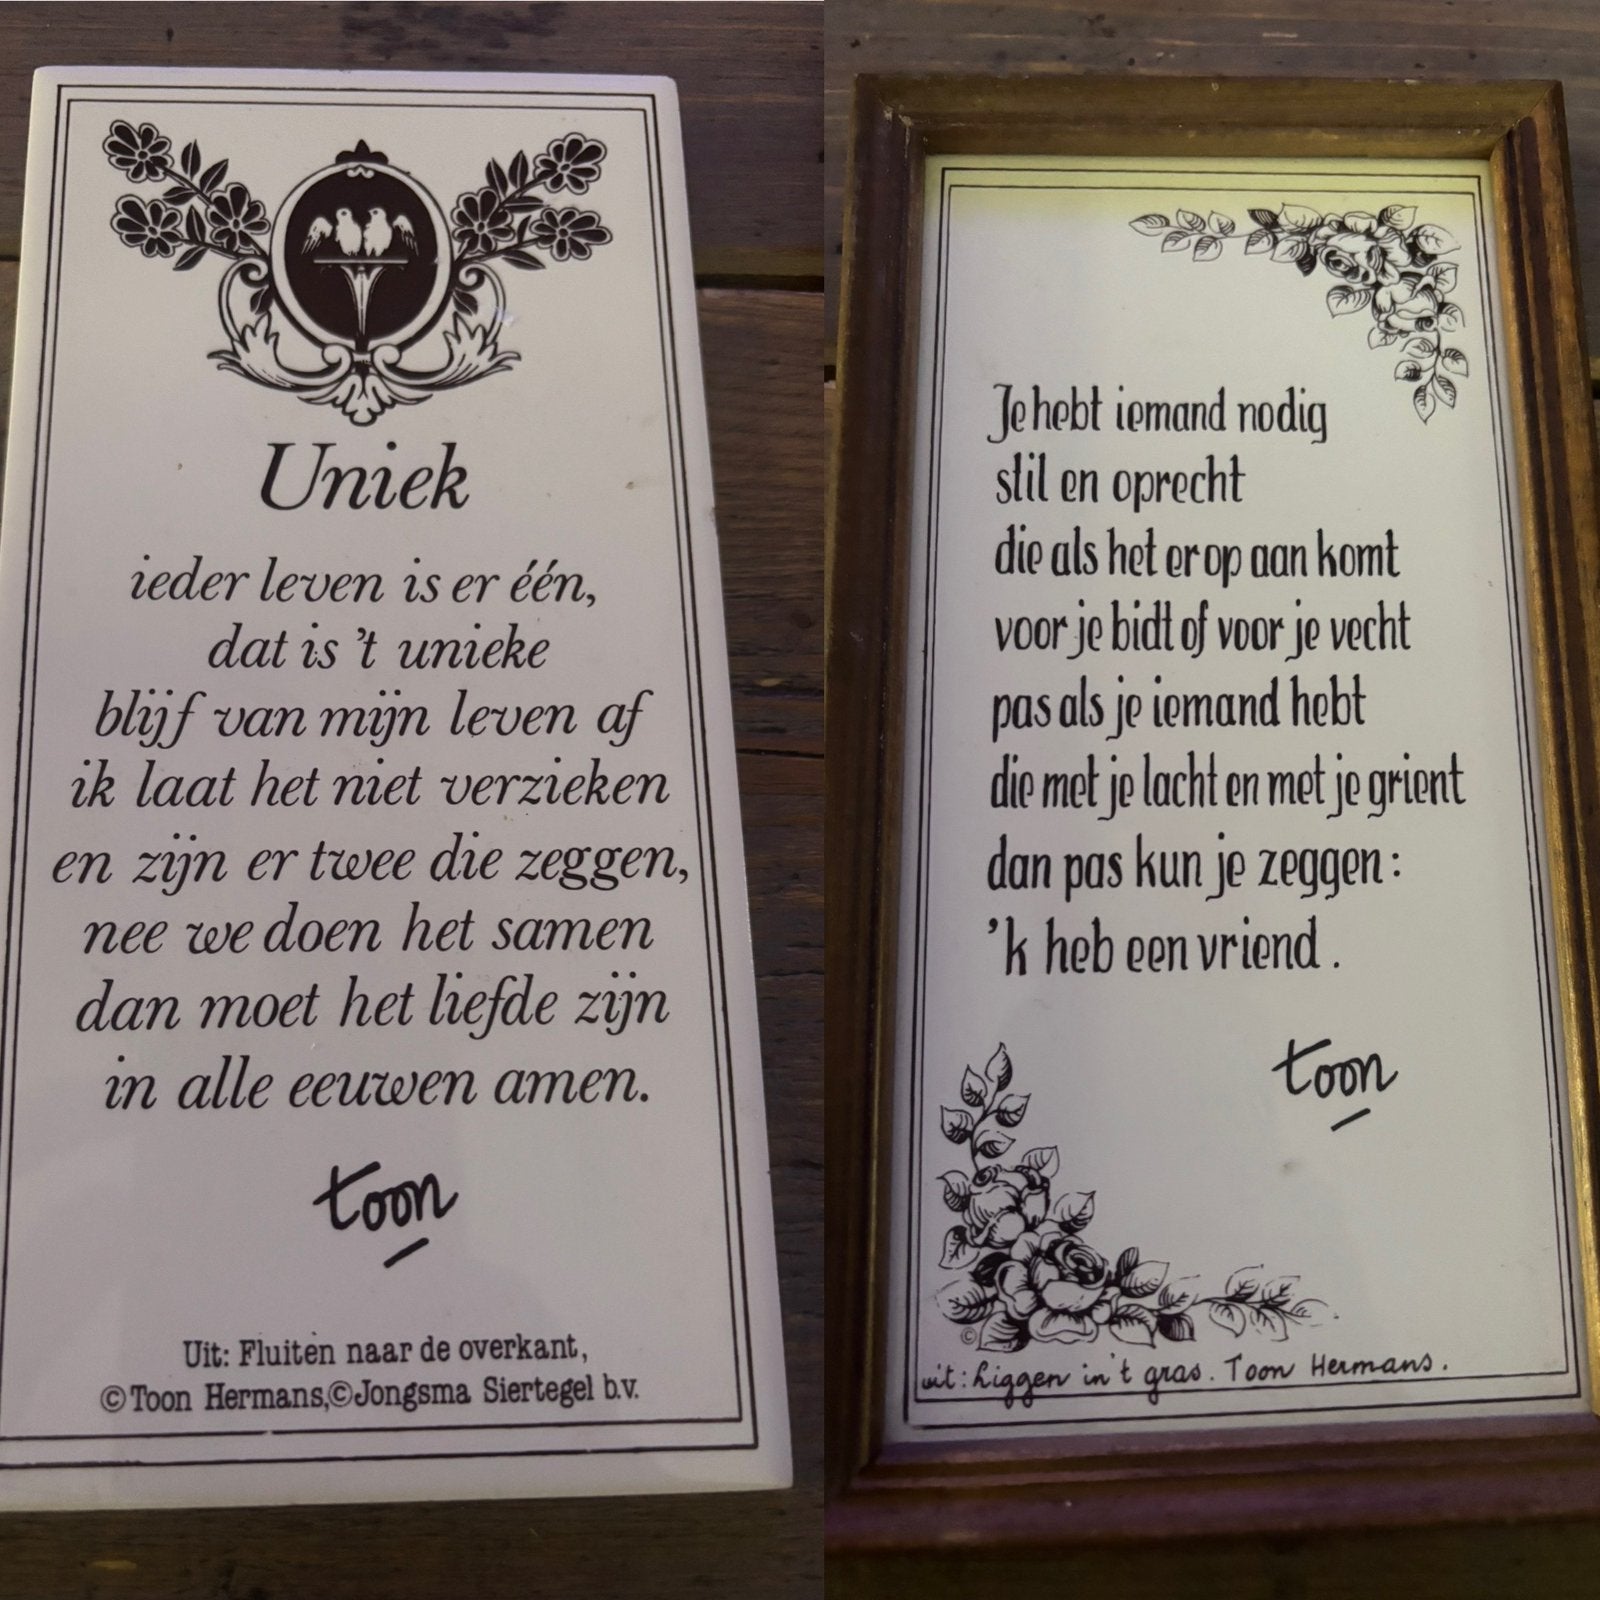 Uniek
ieder leven is er één,
dat is 't unieke
blijf van mijn leven af
ik laat het niet verzieken
en zijn er twee die zeggen,
nee we doen het samen
dan moet het liefde zijn
in alle eeuwen amen.
toon
Uit: Fluiten naar de overkant,
©Toon Hermans,©Jongsma Siertegel b.v.
Je hebt iemand nodig
stil en oprecht
die als het er op aan komt
voor je bidt of voor je vecht
pas als je iemand hebt
die met je lacht en met je grient
dan pas kun je zeggen:
'k heb een vriend.
toon
©
uit: Liggen in 't gras. Toon Hermans.